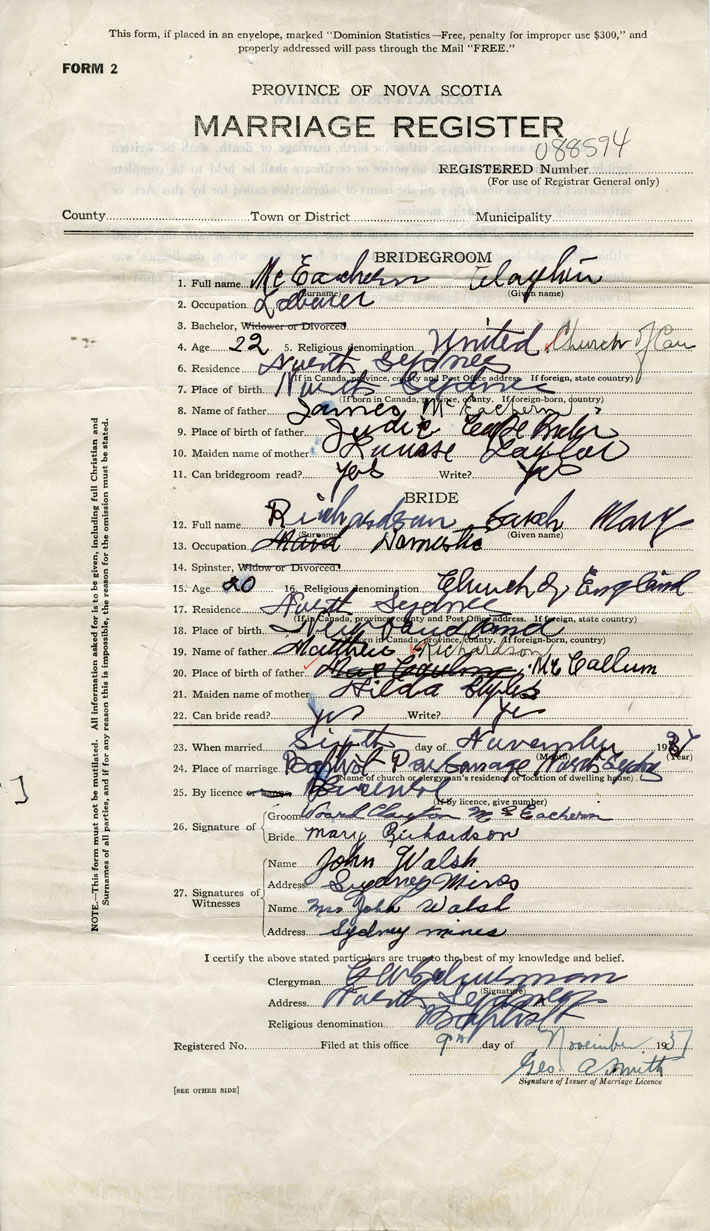 This form, if placed in an envelope, marked "Dominion Statistics—Free, penalty for improper use $300," and
properly addressed will pass through the Mail "FREE."
FORM 2
PROVINCE OF NOVA SCOTIA
MARRIAGE REGISTER
088594
REGISTERED Number
(For use of Registrar General only)
County Town or District Municipality
BRIDEGROOM
1. Full name McEachern
(Surname) (Given name)
2. Occupation Laborer
3. Bachelor, Widower or Divorced
4. Age 22 5. Religious denomination United Church of Can
6. Residence North Sydney
(If in Canada, province, county and Post Office address. If foreign, state country)
7. Place of birth North Sydney
(If born in Canada, province, county. If foreign-born, country)
8. Name of father James McEachern
9. Place of birth of father Cape Breton
10. Maiden name of mother Taylor
11. Can bridegroom read? Yes Write? Yes
BRIDE
12. Full name Richardson Sarah Mary
(Surname) (Given name)
13. Occupation Maid Domestic
14. Spinster, Widow or Divorced
15. Age 20 16. Religious denomination Church of England
17. Residence North Sydney
(If in Canada, province, county and Post Office address. If foreign, state country)
18. Place of birth Newfoundland
(If born in Canada, province, county. If foreign-born, country)
19. Name of father Matthew Richardson
20. Place of birth of father Mc Callum
21. Maiden name of mother Hilda
22. Can bride read? yes Write? Yes
23. When married Sixth day of November 1937
(Month) (Year)
24. Place of marriage Baptist Parsonage North Sydney
(Name of church or clergyman's residence or location of dwelling house)
25. By licence or banns
(If by licence, give number)
26. Signature of
Groom Clayton McEachern
Bride Mary Richardson
27. Signatures of Witnesses
Name John Walsh
Address Sydney Mines
Name Mrs John Walsh
Address Sydney mines
I certify the above stated particulars are true to the best of my knowledge and belief.
Clergyman
(Signature)
Address North Sydney
Religious denomination Baptist
Registered No. Filed at this office 9th day of November 1937
Geo. A Smith
Signature of Issuer of Marriage Licence
[SEE OTHER SIDE]
NOTE.—This form must not be mutilated. All information asked for is to be given, including full Christian and
Surnames of all parties, and if for any reason this is impossible, the reason for the omission must be stated.